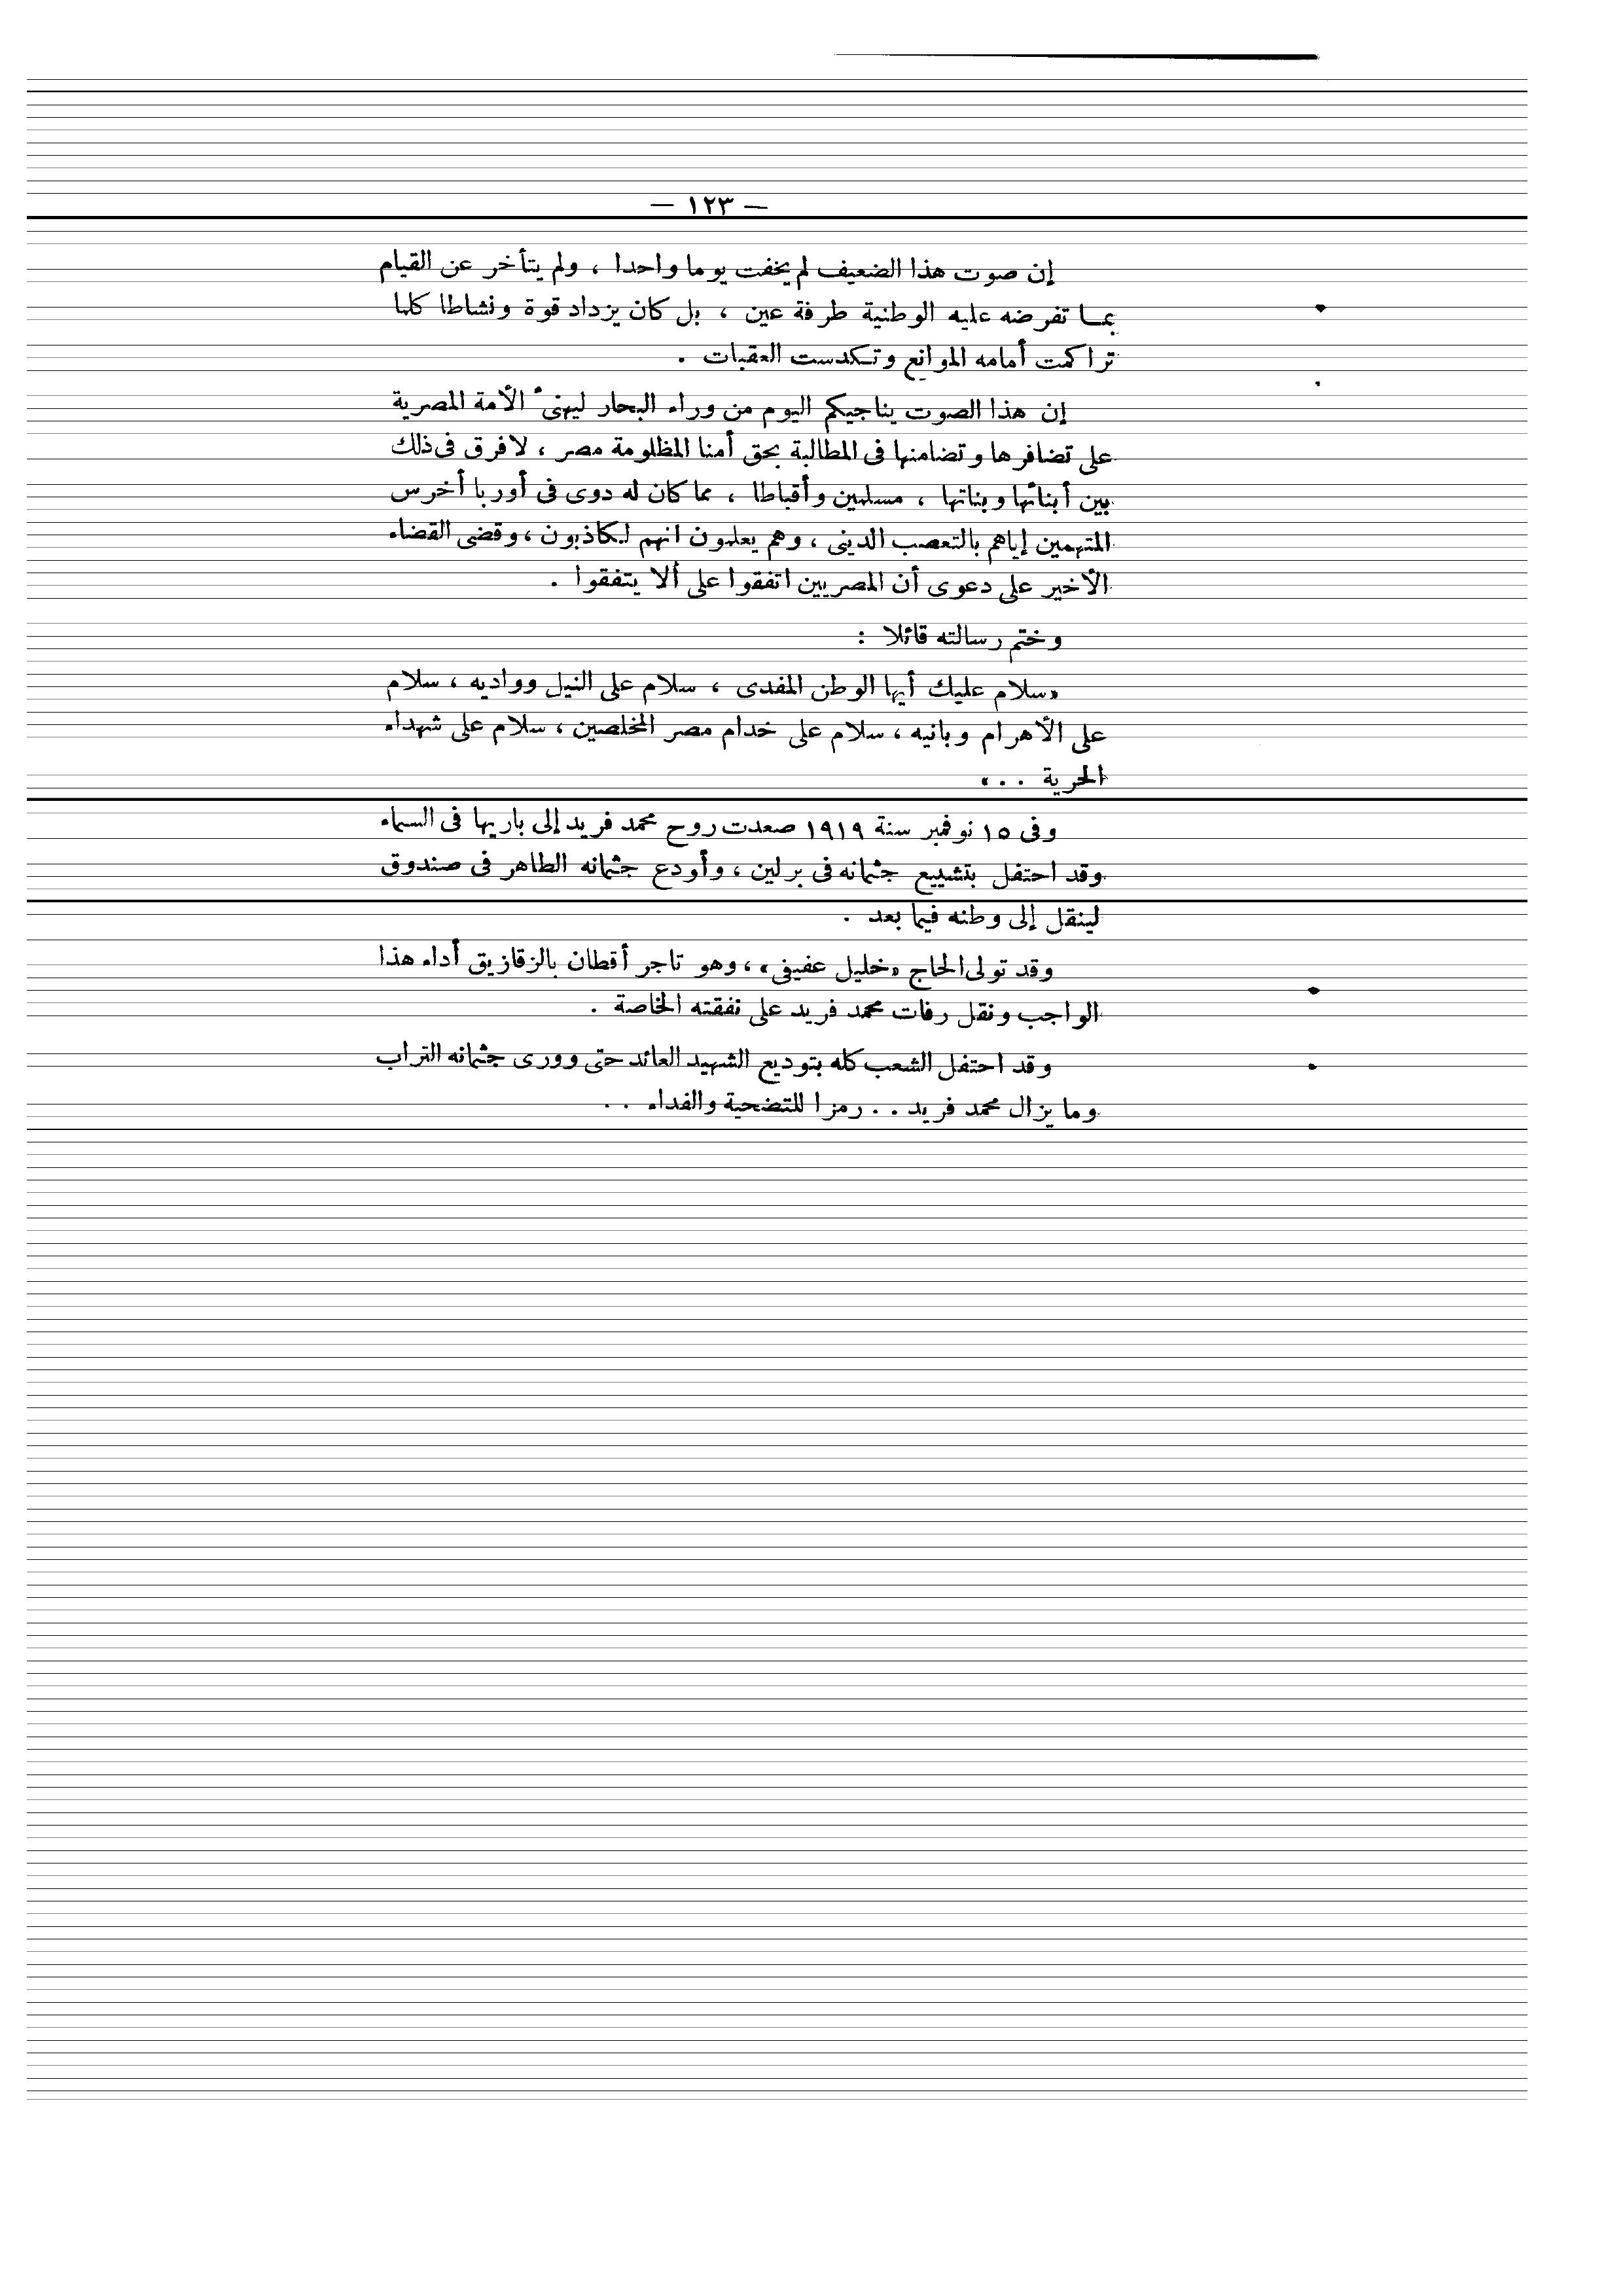 — ١٢٣ —
إن صوت هذا الضعيف لم يخفت يوما واحدا ، ولم يتأخر عن القيام
بمـا تفرضه عليه الوطنية طرفة عين ، بل كان يزداد قوة ونشاطا كلما
تراكمت أمامه الموانع وتكدست العقبات .
إن هذا الصوت يناجيكم اليوم من وراء البحار ليهنئ الأمة المصرية
على تضافرها وتضامنها فى المطالبة بحق أمنا المظلومة مصر ، لا فرق فى ذلك
بين أبنائها وبناتها ، مسلمين وأقباطا ، مما كان له دوى فى أوربا أخرس
المتهمين إياهم بالتعصب الدينى ، وهم يعلمون انهم لكاذبون ، وقضى القضاء
الأخير على دعوى أن المصريين اتفقوا على ألا يتفقوا .
وختم رسالته قائلا :
«سلام عليك أيها الوطن المفدى ، سلام على النيل وواديه ، سلام
على الأهرام وبانيه ، سلام على خدام مصر المخلصين ، سلام على شهداء
الحرية . . »
وفى ١٥ نوفمبر سنة ١٩١٩ صعدت روح محمد فريد إلى باريها فى السماء
وقد احتفل بتشييع جثمانه فى برلين ، وأودع جثمانه الطاهر فى صندوق
لينقل إلى وطنه فيما بعد .
وقد تولى الحاج «خليل عفيفى» ، وهو تاجر أقطان بالزقازيق أداء هذا
الواجب ونقل رفات محمد فريد على نفقته الخاصة .
وقد احتفل الشعب كله بتوديع الشهيد العائد حتى وورى جثمانه التراب
وما يزال محمد فريد . . رمزا للتضحية والفداء . .